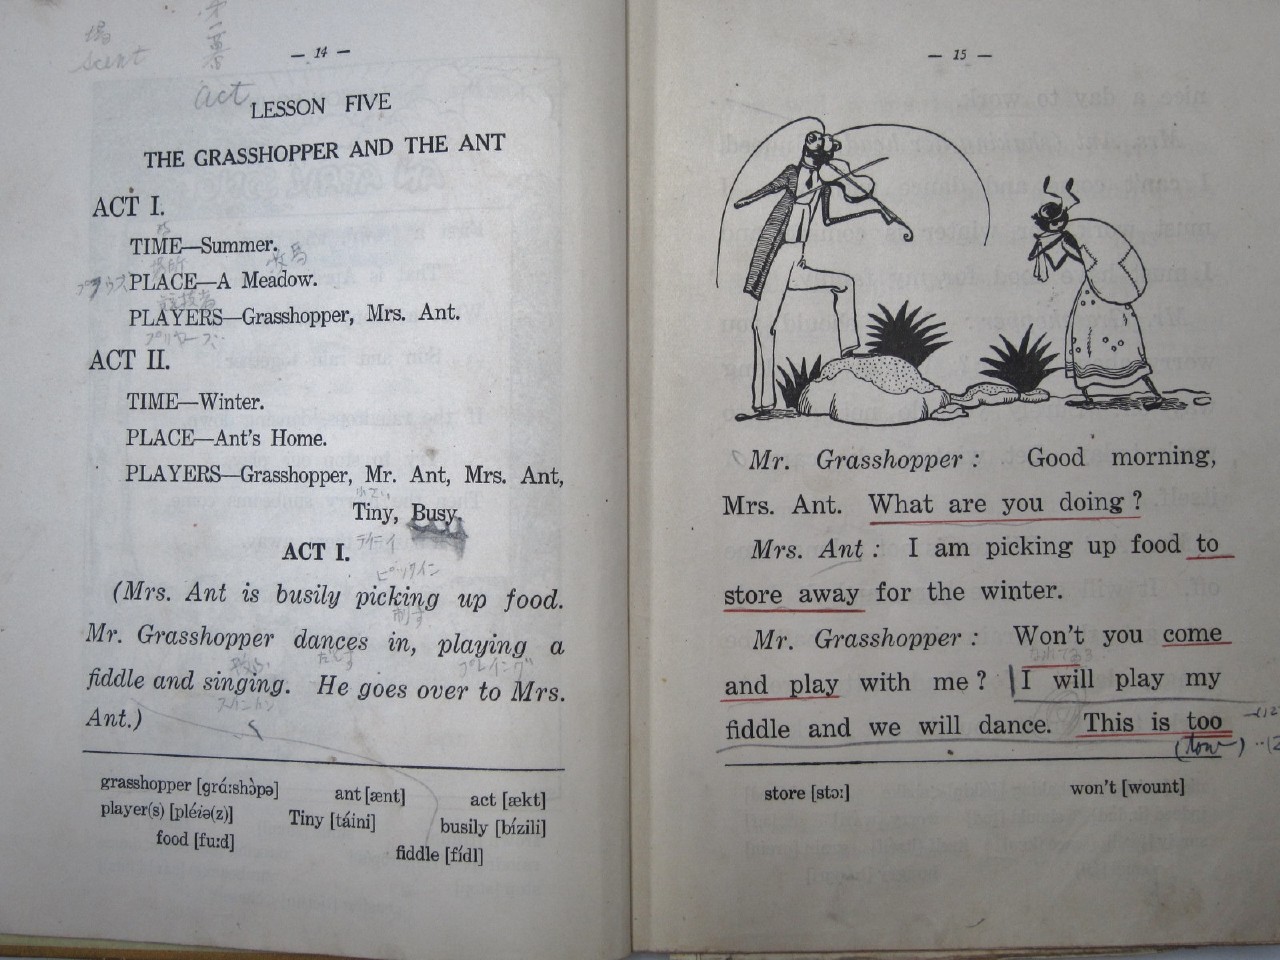 場
scent
第一幕
act
— 14 —
LESSON FIVE
THE GRASSHOPPER AND THE ANT
ACT I.
TIME—Summer.
場所
牧馬
PLACE—A Meadow.
PLAYERS—Grasshopper, Mrs. Ant.
ACT II.
TIME—Winter.
PLACE—Ant's Home.
PLAYERS—Grasshopper, Mr. Ant, Mrs. Ant,
Tiny, Busy.
ACT I.
タイニイ
ピッキイン
(Mrs. Ant is busily picking up food.
Mr. Grasshopper dances in, playing a
プレイング
fiddle and singing. He goes over to Mrs.
Ant.)
grasshopper [grá:shɔ̀pə] ant [ænt] act [ækt]
player(s) [pléiə(z)] Tiny [táini] busily [bízili]
food [fu:d] fiddle [fídl]
— 15 —
Mr. Grasshopper : Good morning,
Mrs. Ant. What are you doing ?
Mrs. Ant : I am picking up food to
store away for the winter.
Mr. Grasshopper : Won't you come
and play with me ? I will play my
fiddle and we will dance. This is too
(tow)
store [stɔ:] won't [wount]